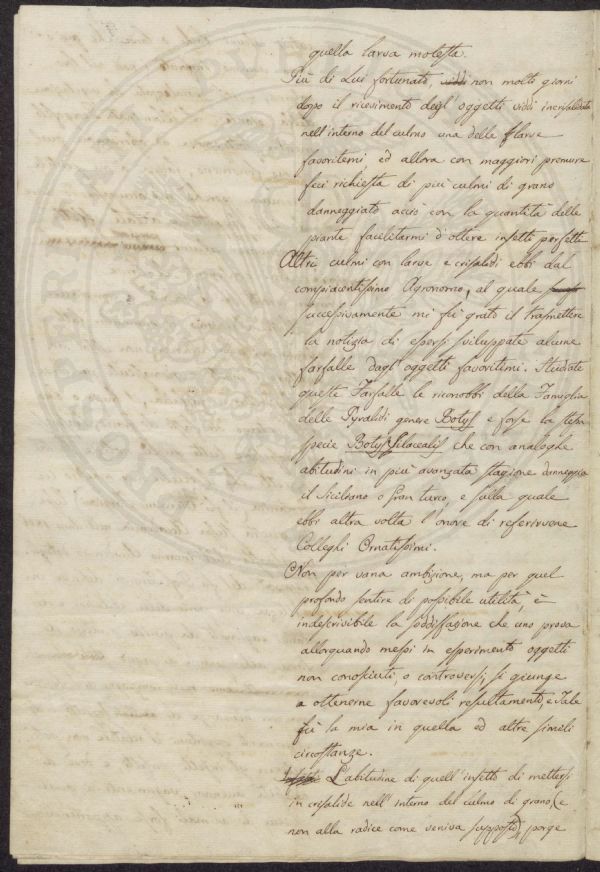 quella larva molesta.
Più di Lui fortunato, viddi non molti giorni
dopo il ricevimento degl' oggetti viddi incrisalidata
nell'interno del culmo una delle llarve
favoritemi, ed allora con maggiori premure
feci richiesta di più culmi di grano
danneggiato acciò con la quantità delle
piante facilitarmi d'ottere insetti perfetti
Altri culmi con larve e crisalidi ebbi dal
compiacentissimo Agronomo, al quale
successivamente mi fù grato il trasmettere
la notizia di essersi sviluppate alcune
farfalle dagl' oggetti favoritemi. Studiate
queste Farfalle le riconobbi della Famiglia
delle Pyralidi genere Botys e forse la stessa
specie Botys Silacealis che con analoghe
abitudini in più avanzata stagione danneggia
il Siciliano o Gran turco, e sulla quale
ebbi altra volta l'onore di referirvene
Colleghi Ornatissimi.
Non per vana ambizione, ma per quel
profondo sentire di possibile utilità, è
indescrivibile la soddisfazione che uno prova
allorquando messi in esperimento oggetti
non conosciuti, o controversi, si giunge
a ottenerne favorevoli resultamenti, e Tale
fù la mia in quella ed altre simili
circostanze.
L'abitudine di quell'insetto di mettersi
in crisalide nell'interno del culmo di grano, (e
non alla radice come veniva supposto), porge